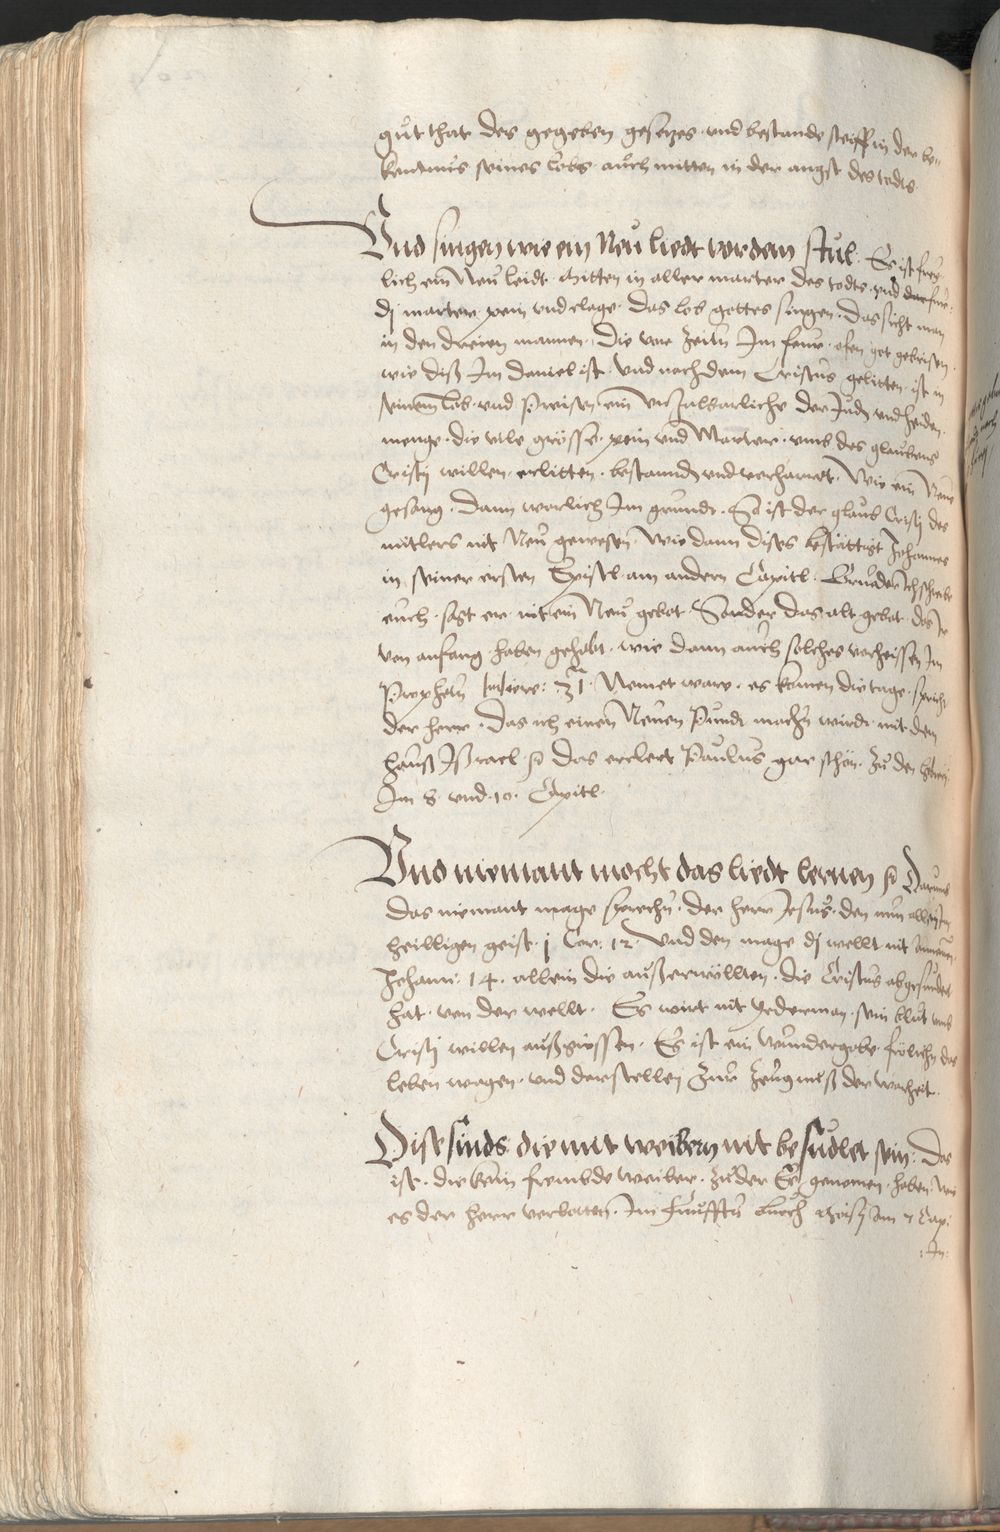 gut that des gegeben gesetzes · vnd bestande steiff in der be⸗
kentnus seines lobs · auch mitten in der angst des tods ·
Vnd singen wie ein Neu liedt vor dem stul · Es ist frey
lich ein Neu leidt · mitten in aller marter des todts · vnd
dj marter pein vnd clage · das lob gottes singen · Das sicht man
in den dreien mannen · Die vor zeitn̄ Im feur ofen got gebrisen ·
wie diß Im daniel ist · Vnd nach dem Cristus gelitten · ist in
seinem lob · vnd Preisen · ein vnzalbarliche der Judn̄ vnd heiden
menge · die vile grösse · pein vnd Marter · vmb des glaubens
Cristj willen · erlitten · bestanndn̄ vnd verharret · Wie ein Neue
gesang · Dann warlich Im grundt · So ist der glaub Cristj des
mitlers nit Neu gewesen · Wie dann dises bestättigt Johannes
in seiner ersten Epistl · am andern Capitl · Brueder Ich schreibe
euch · sagt er · nit ein Neu gebot · Sonder das alt gebot · des Ir
von anfang · haben gehabt · wie dann auch solches verheissen Im
Prophetn̄ Jiere: 31 · Nemet ware · es komen die tage · spricht
der herr · Das ich einen Neuen Pundt machn̄ wirdt · mit dem
hauß Jsrael · Das erclert Paulus gar schön · zu den hebrej
Im 8 · vnd · 10 · Capitl ·
Vnd niemant mocht das liedt lernen Darumb
das niemant mage sprechn̄ · der herr Jesus · den nun allein im
heilligen geist · j Cor: 12 · Vnd den mage dj wellt nit annemen
Johann: 14 · allein die außerwöllten · die Cristus abgesundert
hat · von der wellt · Es wirt nit yederman · sein blut vmb
Cristj willen außgiessen · Es ist ein wundergabe · frölichn̄ das
leben wagen · vnd darstellen zur zeugnuß der warheit ·
Dise sinds die mit weibern nit besudlet sein · Das
ist · die kein frembde weiber · zu der Ee genomen · haben · wie
es der herr verbotten · Im funfftn̄ buech moisj am 7 Cap:
: In: